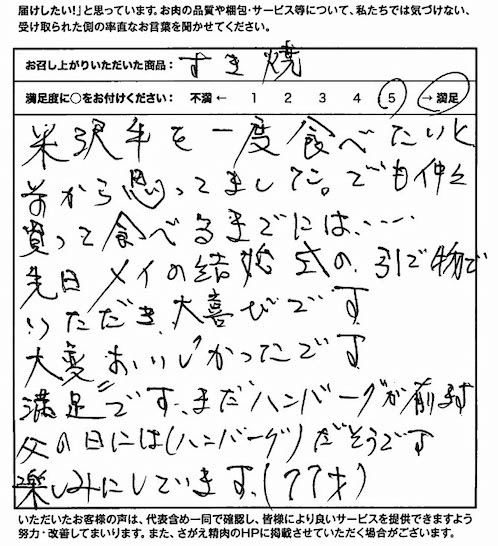 届けしたい!』と思っています。お肉の品質や梱包・サービス等について、私たちでは気づけない、
受け取られた側の率直なお言葉を聞かせてください。
お召し上がりいただいた商品: すき焼
満足度に○をお付けください: 不満 ← 1 2 3 4 5 → 満足
米沢牛を一度食べたいと
前から思ってました。でも仲々
買って食べるまでには‥‥
先日メイの結婚式の引で物で
いただき、大喜びです
大変おいしかったです
満足です。まだハンバーグが有ります
父の日には(ハンバーグ)だそうです
楽しみにしています。(77才)
いただいたお客様の声は、代表含め一同で確認し、皆様により良いサービスを提供できますよう
努力・改善してまいります。また、さがえ精肉のHPに掲載させていただく場合がございます。